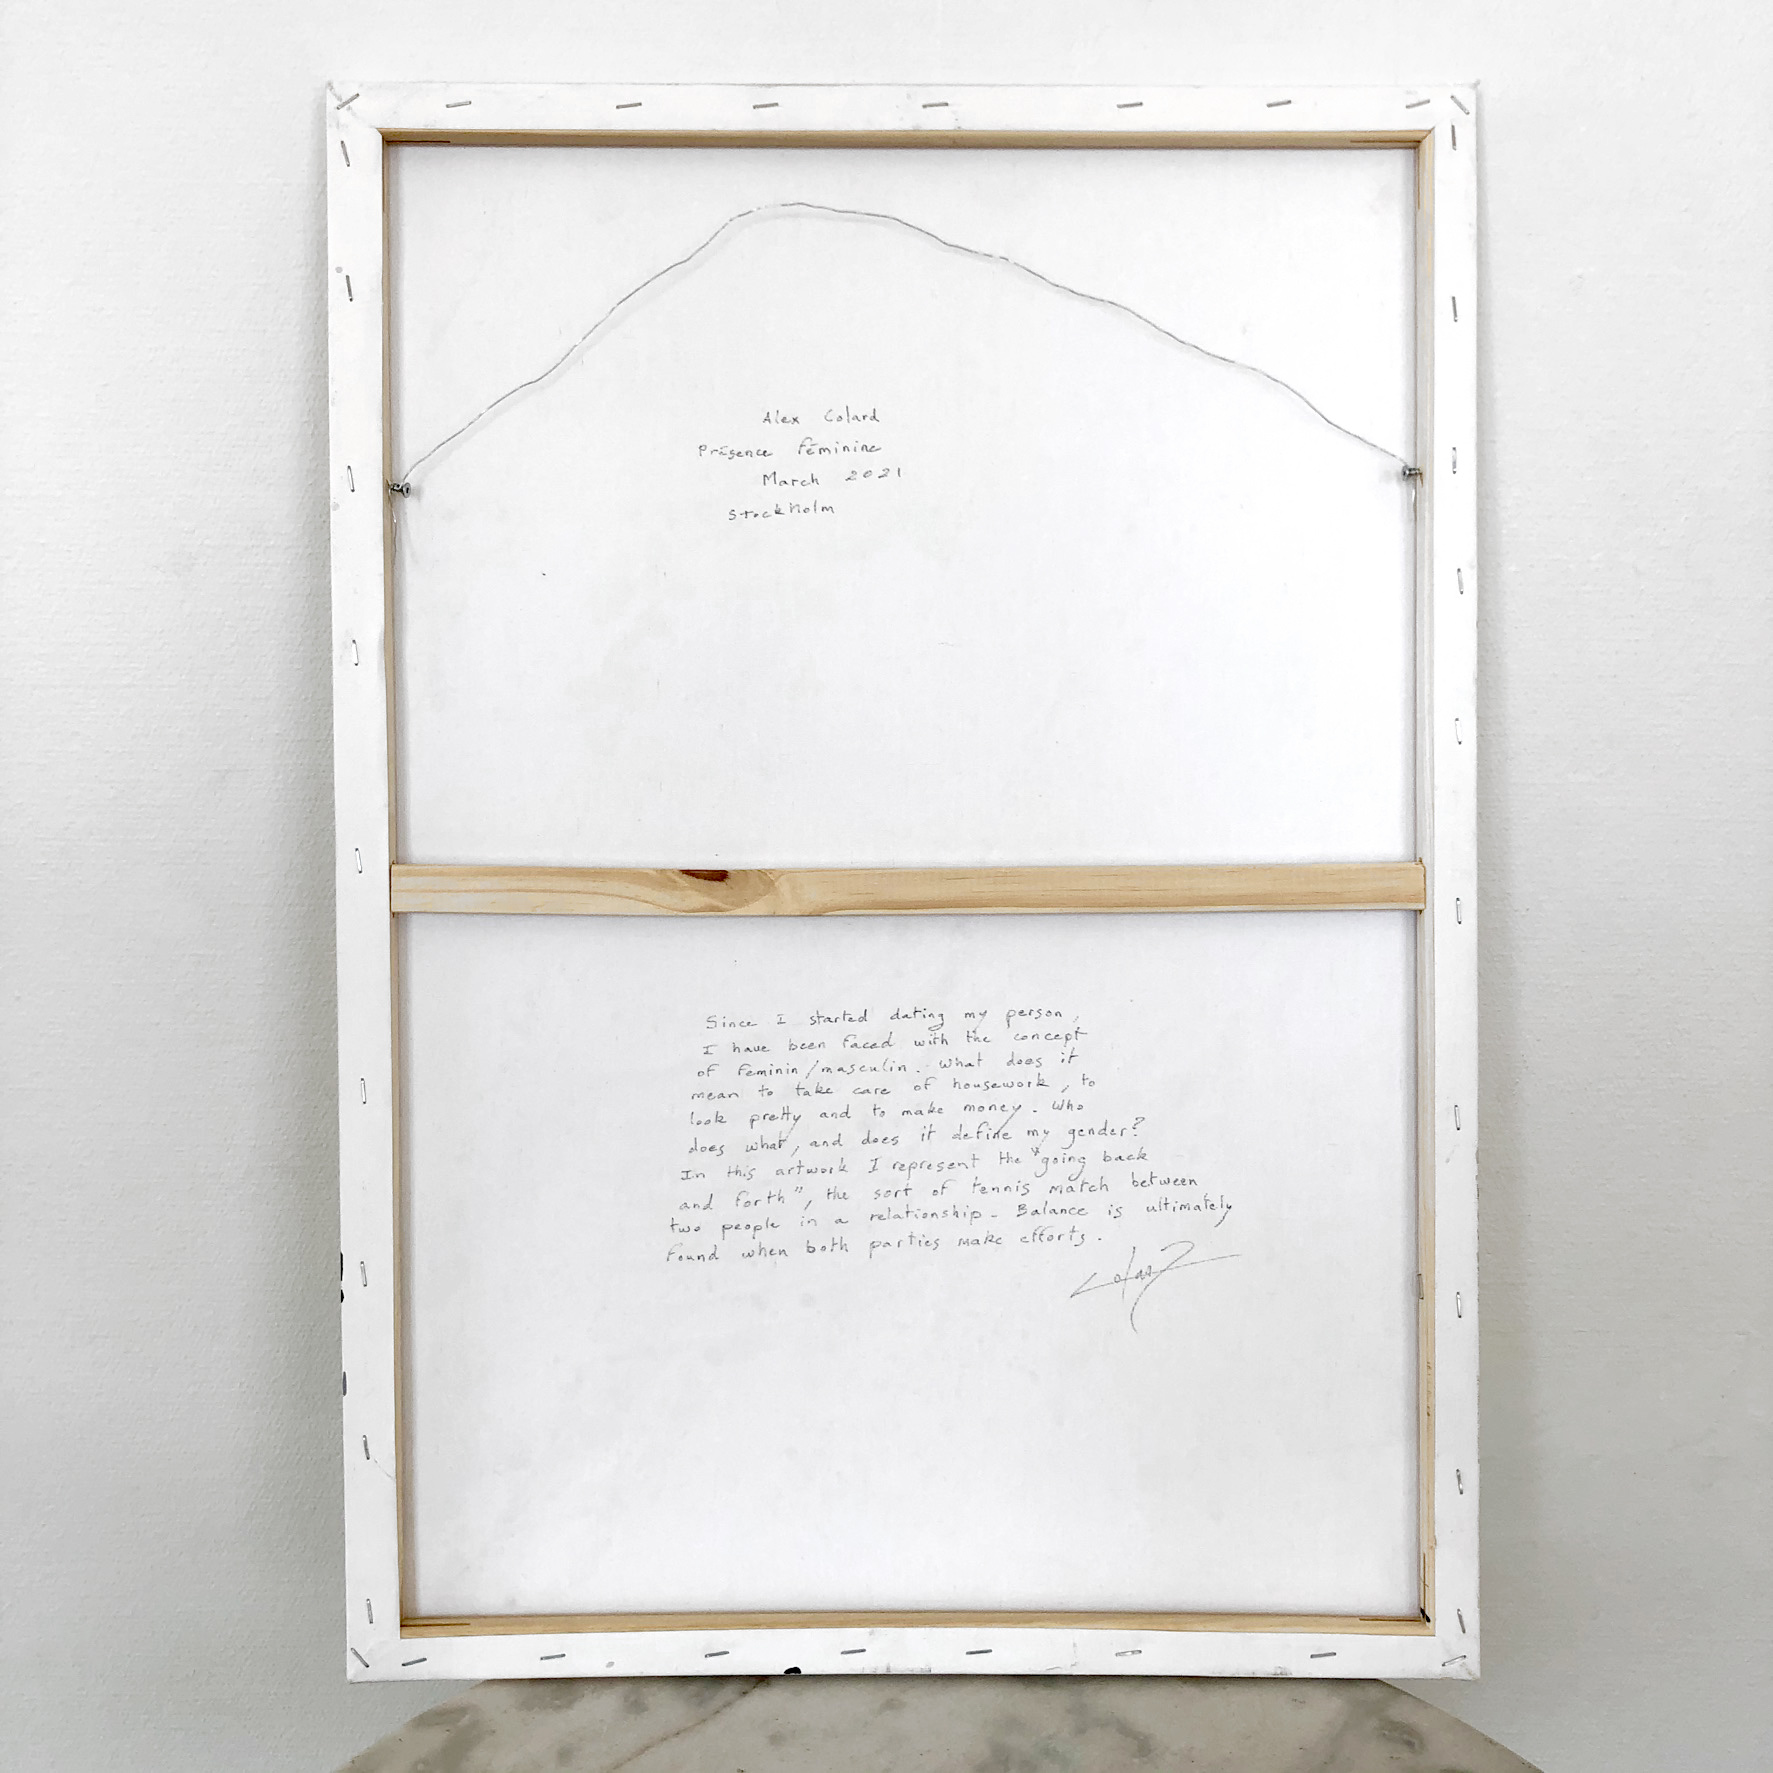 Alex Colard
Présence féminine
March 2021
Stockholm
Since I started dating my person,
I have been faced with the concept
of feminin/masculin. What does it
mean to take care of housework, to
look pretty and to make money. Who
does what, and does it define my gender?
In this artwork I represent the "going back
and forth", the sort of tennis match between
two people in a relationship. Balance is ultimately
found when both parties make efforts.
Colard